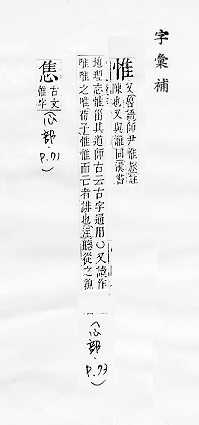 字彙補
惟 又詹 師尹惟 註
陳也又與濰同漢書
地理志惟甾其道師古云古字通用）又讀作
唯唯之唯荀子惟惟而亡者誹也 聽從之貌
（心部．P.73）
雋 古文
惟字（心部．P.71）